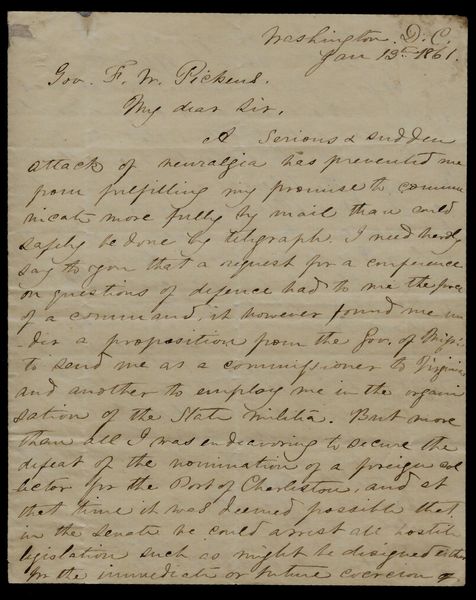 Washington. D. C.
Jan 13th 1861.
Gov. F. W. Pickens.
My dear Sir,
A serious & sudden
attack of neuralgia has prevented me
from fulfilling my promise to commu-
nicate more fully by mail than could
safely be done by telegraph. I need hardly
say to you that a request for a conference
on questions of defence had to me the force
of a command, it however found me un
-der a proposition from the Gov. of Missi.
to send me as a commissioner to Virginia
and another to employ me in the organi
sation of the State militia. But more
than all I was endeavoring to secure the
defeat of the nomination of a foreign col
lector for the Port of Charleston, and at
that time it was deemed possible that
in the Senate we could arrest all hostile
legislation such as might be designed either
for the immediate or future coercion of